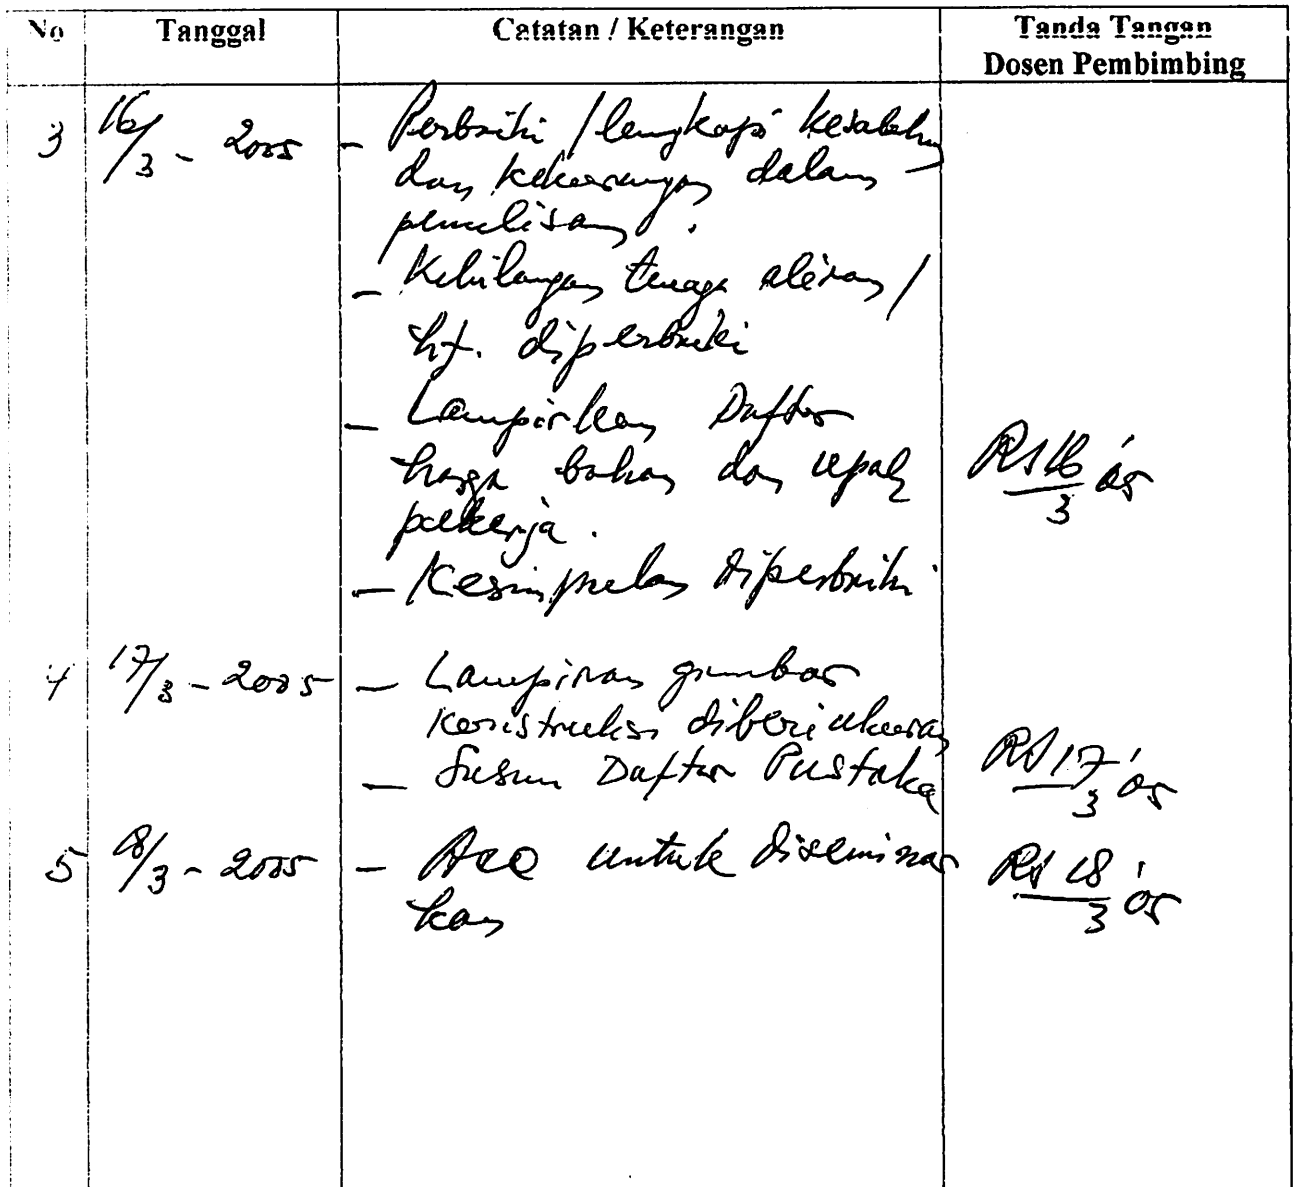 No Tanggal Catatan / Keterangan Tanda Tangan
Dosen Pembimbing
3 16/3 - 2005 - Perbaiki / lengkapi kesalahan
dan kekurangan dalam
penulisan.
- Kehilangan tenaga aliran /
hf. diperbaiki
- Lampirkan Daftar
harga bahan dan upah
pekerja.
16/3 '05
- Kesimpulan diperbaiki
4 17/3 - 2005 - Lampiran gambar
Konstruksi diberi ukuran
- Susun Daftar Pustaka
17/3 '05
5 18/3 - 2005 - Acc untuk diseminar
kan
18/3 '05